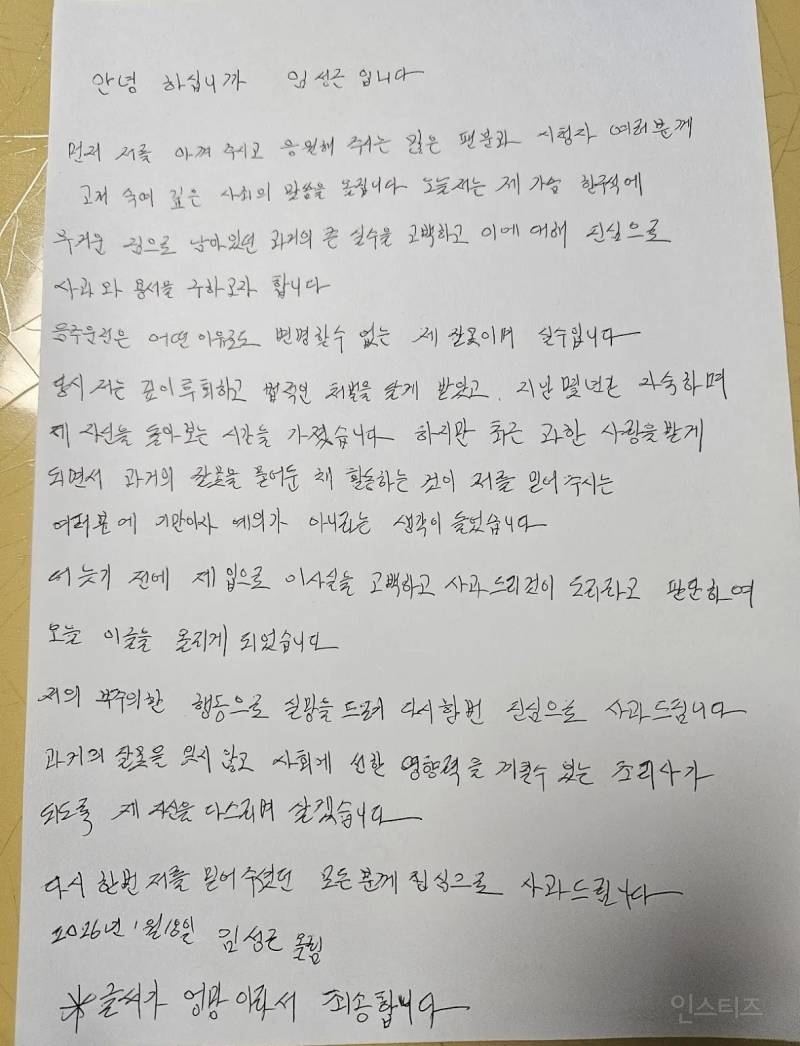 안녕 하십니까 임성근 입니다
먼저 저를 아껴 주시고 응원해 주시는 많은 팬분과 시청자 여러분께
고개 숙여 깊은 사죄의 말씀을 올립니다 오늘 저는 제 가슴 한구석에
무거운 짐으로 남아있던 과거의 큰 실수을 고백하고 이에 대해 진심으로
사과와 용서를 구하고자 합니다
음주운전은 어떤 이유로도 변명할수 없는 제 잘못이며 실수입니다
당시 저는 깊이 후회하고 법적인 처벌을 달게 받았고, 지난 몇년간 자숙하며
제 자신을 돌아보는 시간을 가졌습니다 하지만 최근 과한 사랑을 받게
되면서 과거의 잘못을 묻어둔 채 활동하는 것이 저를 믿어 주시는
여러분에 기만이자 예의가 아니라는 생각이 들었습니다
더 늦기 전에 제 입으로 이사실을 고백하고 사과드리것이 도리라고 판단하여
오늘 이글을 올리게 되었습니다
저의 부주의한 행동으로 실망을 드려 다시한번 진심으로 사과드립니다
과거의 잘못을 잊지 않고 사회에 선한 영향력을 끼칠수 있는 조리사가
되도록 제 자신을 다스리며 살겠습니다
다시 한번 저를 믿어 주셨던 모든 분께 진심으로 사과드립니다
2026년 1월 18일 임성근 올림
※글씨가 엉망이라서 죄송합니다
인스티즈